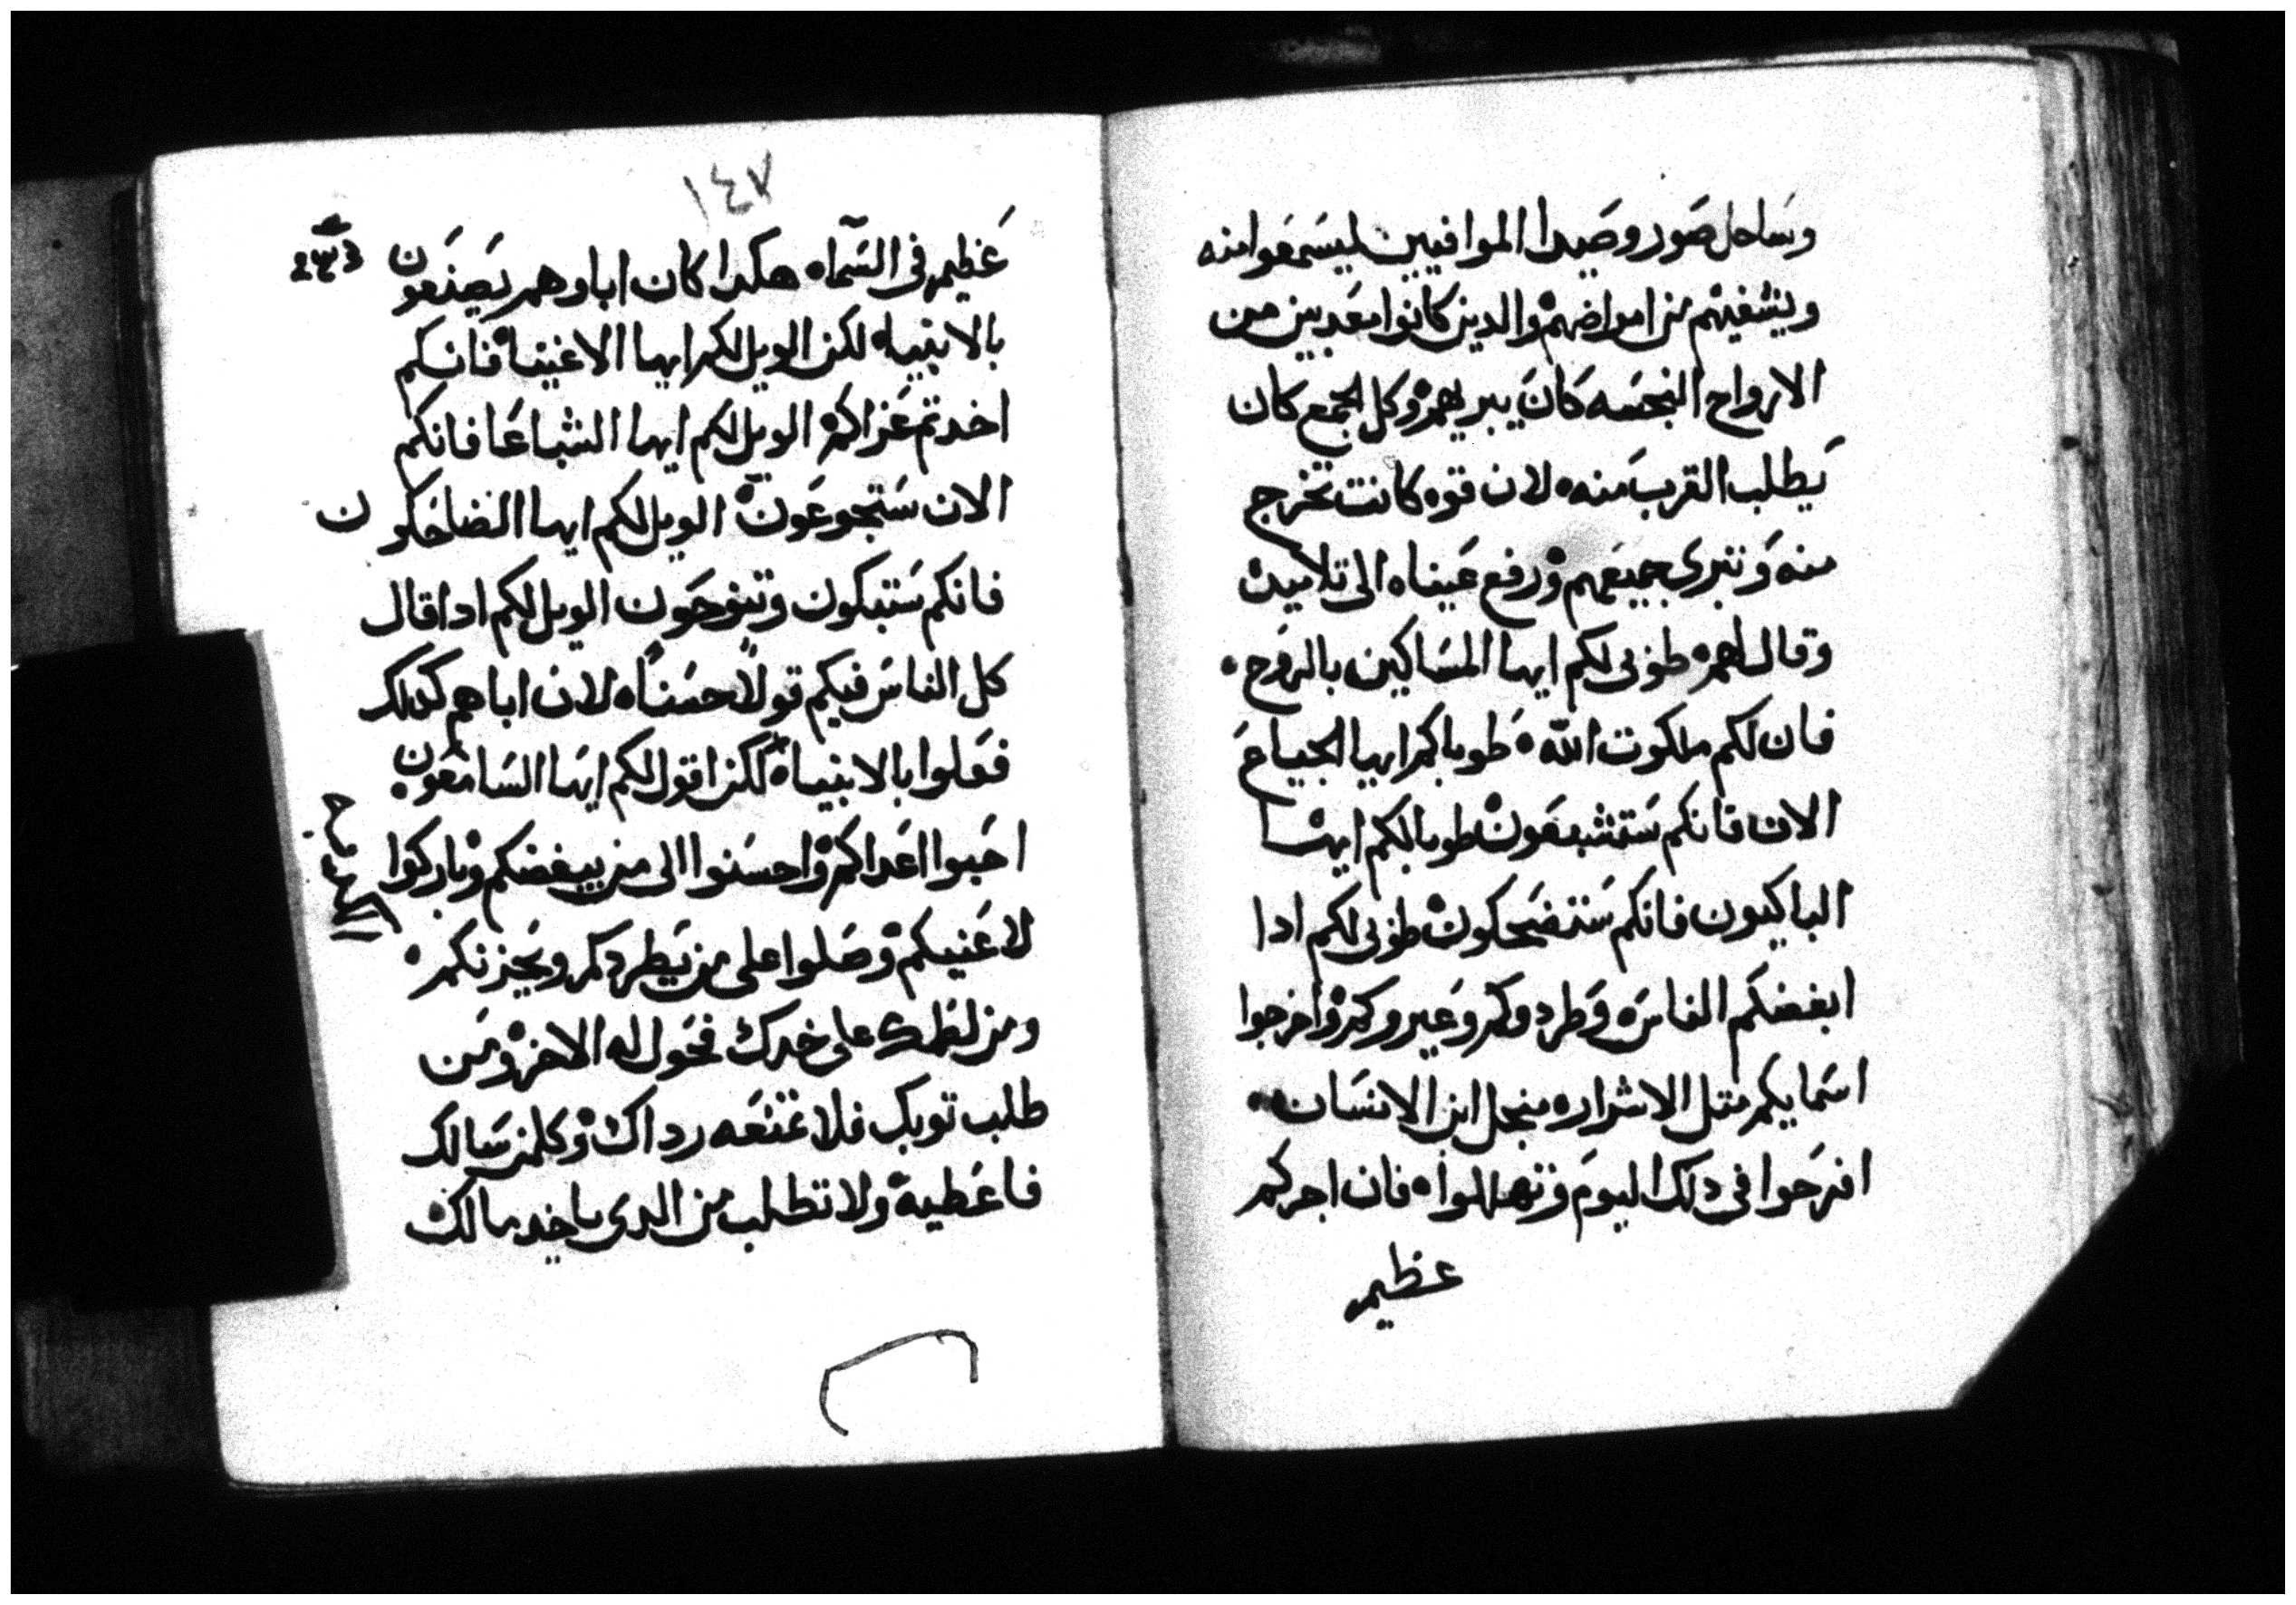 وساحل صور وصيدا الموافيين ليسمعوا منه
ويشفيهم من امراضهم والدين كانوا معدبين من
الارواح النجسه كان يبريهم وكل الجمع كان
يطلب القرب منه لان قوه كانت تخرج
منه وتبرى جميعهم ورفع عيناه الى تلاميده
وقال لهم طوبى لكم ايها المساكين بالروح
فان لكم ملكوت الله طوباكم ايها الجياع
الان فانكم ستشبعون طوبا لكم ايها
الباكيون فانكم ستضحكون طوبى لكم ادا
ابغضكم الناس وطردوكم وعيروكم واخرجوا
اسمايكم متل الاشرار منجل ابن الانسان
افرحوا فى دلك اليوم وتهللوا فان اجركم
عظيم
١٤٧
عظيم فى السماء هكدا كان اباوهم يصنعون
بالانبياء لكن الويل لكم ايها الاغنيا فانكم
اخدتم عزاكم الويل لكم ايها الشباعا فانكم
الان ستجوعون الويل لكم ايها الضاحكون
فانكم ستبكون وتنوحون الويل لكم ادا قال
كل الناس فيكم قولا حسنا لان اباهم كدلك
فعلوا بالانبياء لكن اقول لكم ايها السامعون
احبوا اعداكم واحسنوا الى من يبغضكم وباركوا
لاعنيكم وصلوا على من يطردكم ويحزنكم
ومن لطمك على خدك فحول له الاخر ومن
طلب توبك فلا تمنعه رداك وكلمن سالك
فاعطيه ولا تطلب من الدى ياخد مالك